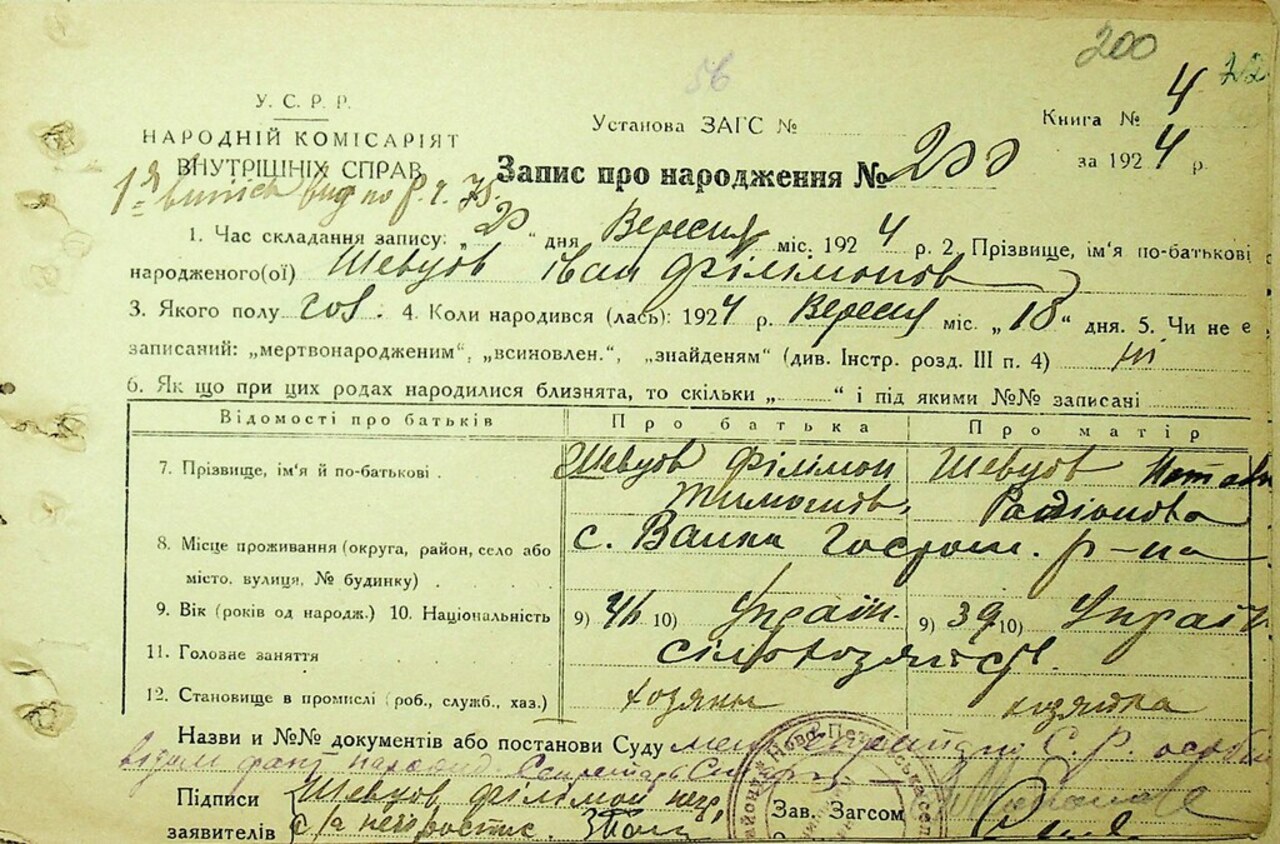 200
56
22
У. С. Р. Р.
НАРОДНІЙ КОМІСАРІЯТ
ВНУТРІШНІХ СПРАВ
Установа ЗАГС №
Книга № 4
Запис про народження № 200
за 1924 р.
1. Час складання запису: „20“ дня Вересня міс. 1924 р. 2. Прізвище, ім'я по-батькові
народженого(ої) Шевцов Іван Філімонов
3. Якого полу чол. 4. Коли народився (лась): 1924 р. Вересня міс. „18“ дня. 5. Чи не є
записаний: „мертвонародженим“, „всиновлен.“, „знайденям“ (див. Інстр. розд. III п. 4) Ні
6. Як що при цих родах народилися близнята, то скільки „ “ і під якими №№ записані
Відомості про батьків Про батька Про матір
7. Прізвище, ім'я й по-батькові Шевцов Філімон Шевцов
Тимошов. Радіонова
8. Місце проживання (округа, район, село або с. р-на
місто, вулиця, № будинку)
9. Вік (років од народж.) 10. Національність 9) 46 10) Україн. 9) 39 10) Україн
11. Головне заняття
12. Становище в промислі (роб., служб., хаз.) хозяин хозяйка
Назви и №№ документів або постанови Суду
Підписи Шевцов Філімон
заявителів
Зав. Загсом